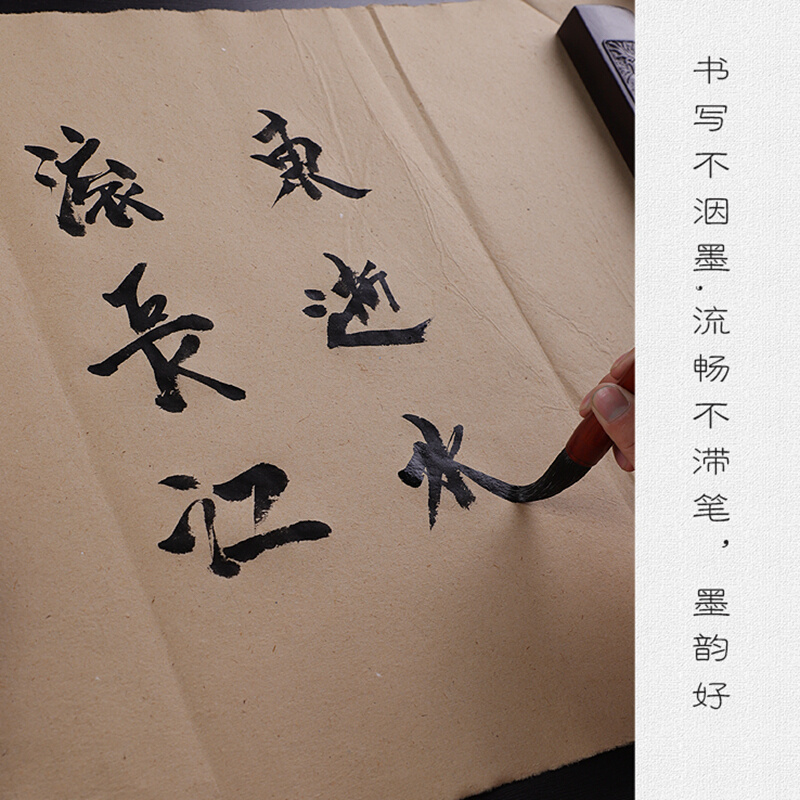 滚長江
東逝水
书写不洇墨.流畅不滞笔，墨韵好